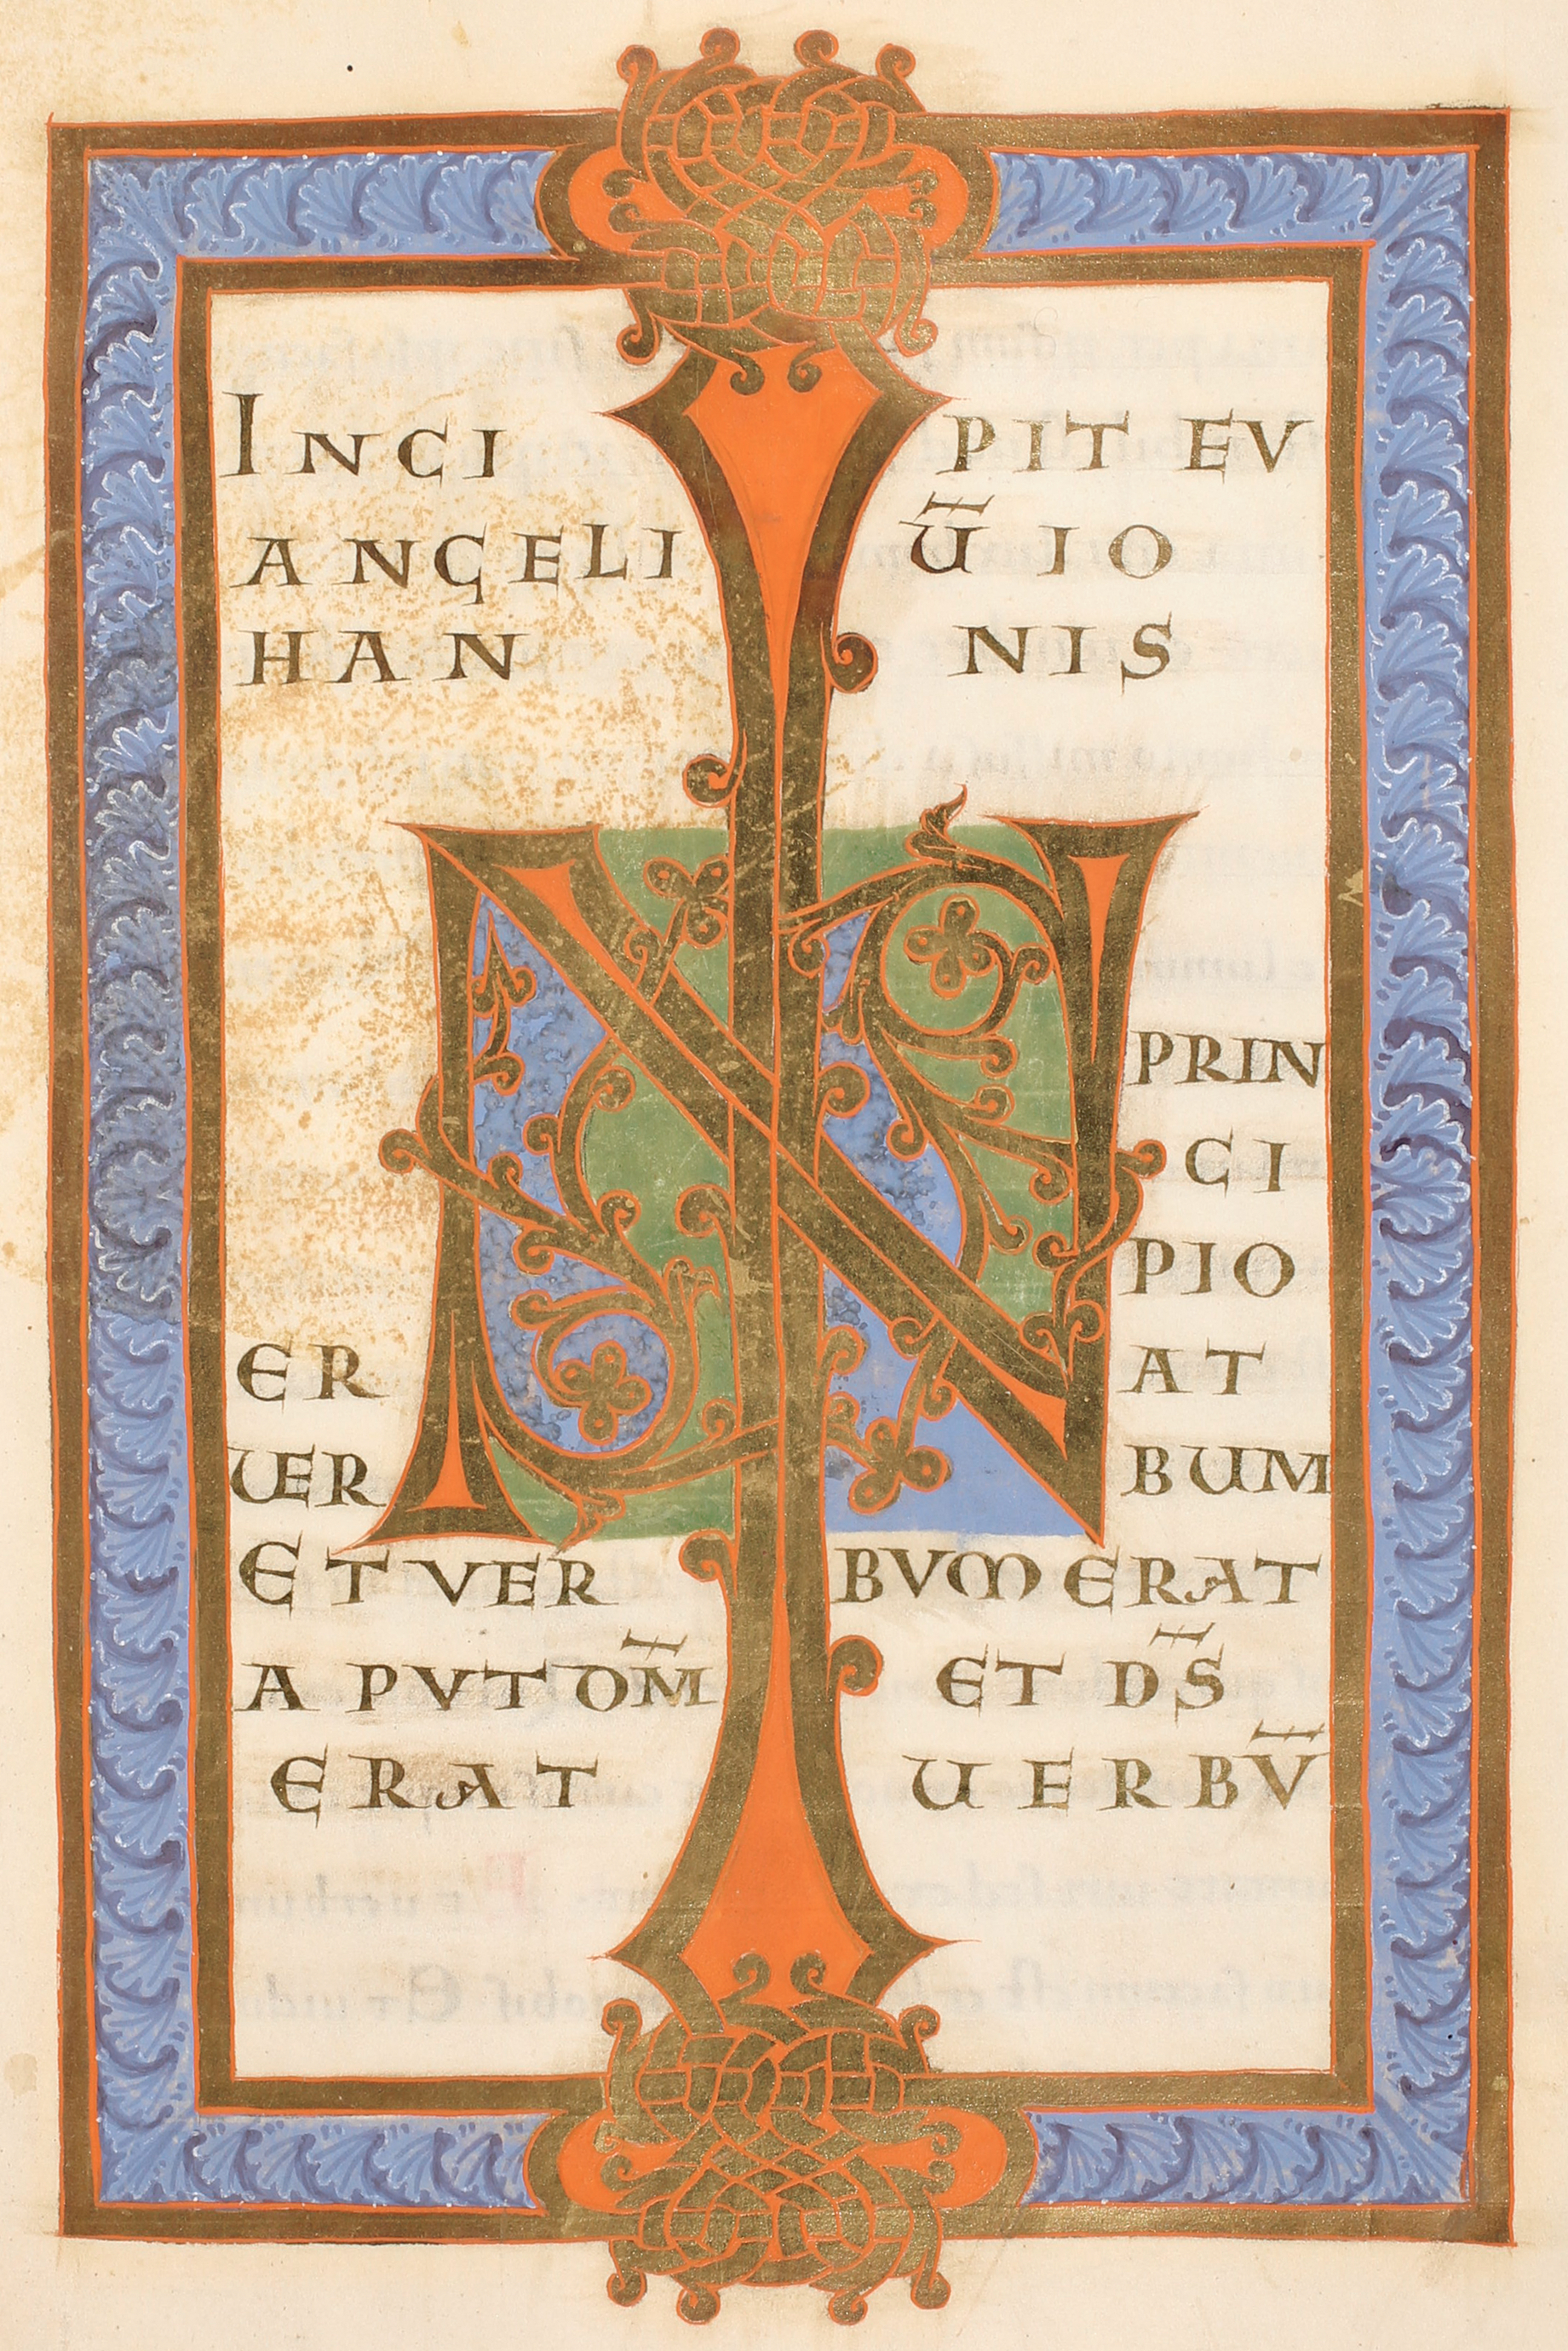 INCIPIT EV
ANGELIU̅ IO
HANNIS
IN
PRIN
CI
PIO
ERAT
UERBUM
ET VERBVM ERAT
APVT DM̅ ET DS̅
ERAT UERBV̅